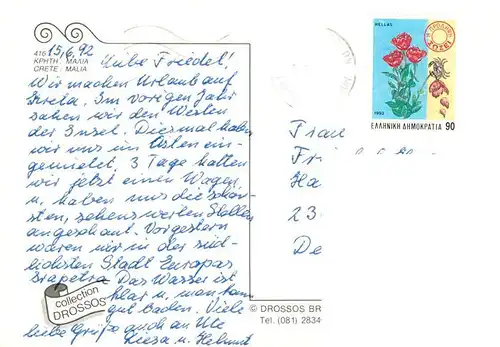 416
ΚΡΗΤΗ : ΜΑΛΙΑ
CRETE : MALIA
15.6.92
Liebe Friedel!
Wir machen Urlaub auf
Kreta. Im vorigen Jahr
sahen wir den Westen
der Insel. Diesmal haben
wir uns im Osten ein-
gemietet. 3 Tage hatten
wir jetzt einen Wagen
u. haben uns die schön-
sten, sehenswerten Stellen
angeschaut. Vorgestern
waren wir in der süd-
lichsten Stadt Europas
Das Wasser ist
klar u. man kann
gut baden. Viele
liebe Grüße auch an Ute
u. Helmut
collection
DROSSOS
HELLAS
1992
ΕΛΛΗΝΙΚΗ ΔΗΜΟΚΡΑΤΙΑ 90
Frau
Fri
Ha
23
De
© DROSSOS BR
Tel. (081) 2834